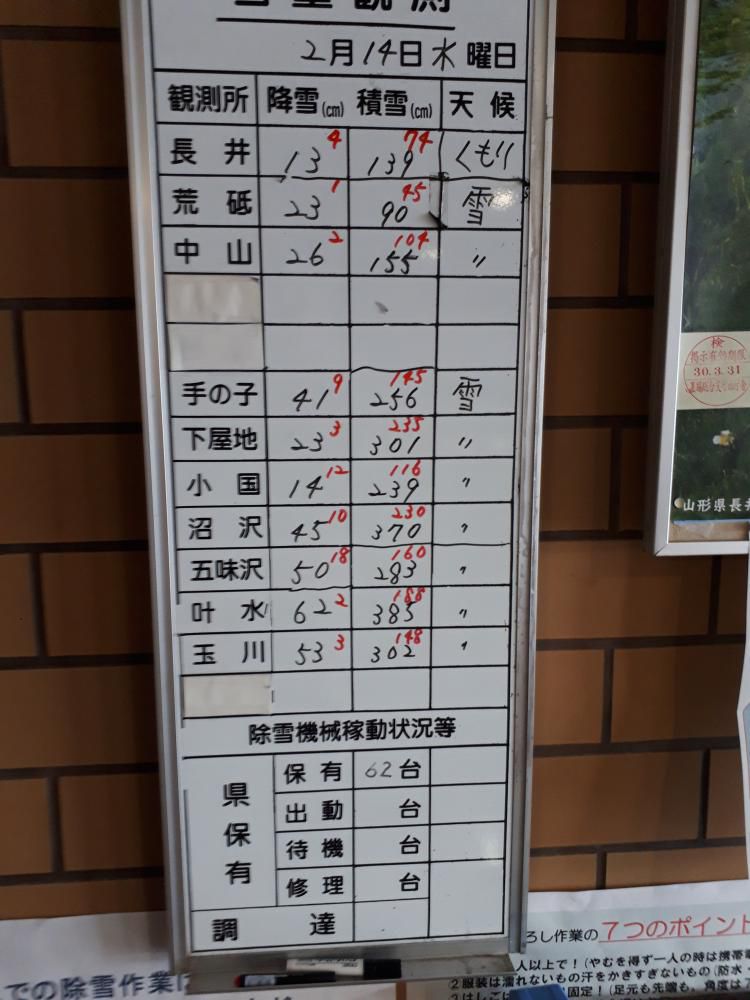 2月14日水曜日
観測所 降雪(cm) 積雪(cm) 天候
長井 13 4 139 74 くもり
荒砥 23 1 90 45 雪
中山 26 2 155 104 〃
手の子 41 9 256 145 雪
下屋地 23 3 301 235 〃
小国 14 12 239 116 〃
沼沢 45 10 370 230 〃
五味沢 50 18 283 160 〃
叶水 62 2 385 188 〃
玉川 53 3 302 148 〃
除雪機械稼動状況等
県保有
保有 62台
出動 台
待機 台
修理 台
調達
検
掲示有効期限
30.3.31
山形県長井
での除雪作業は
ろし作業の7つのポイント
人以上で!(やむを得ず一人の時は携帯電
2服装は濡れないもの汗をかきすぎないもの(防水・
固定!(足元も先端も、角度は